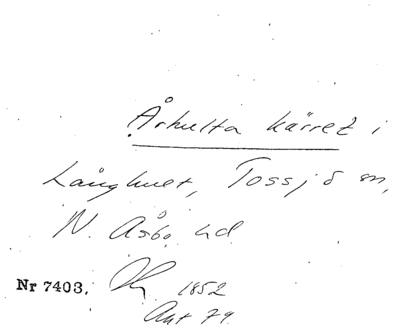 Århulta kärret i
Långhult, Tossjö sn,
N. Åsbo hd
Nr 7403. 1852
Ant 79.